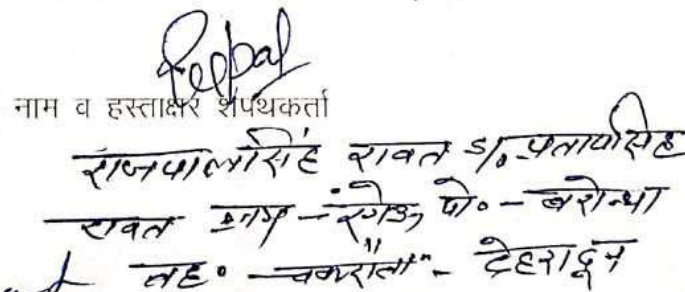 Rajpal
नाम व हस्ताक्षर शपथकर्ता
राजपालसिंह रावत S/o प्रतापसिंह
रावत ग्राम - पो० - बरोन्था
तह० - चकराता - देहरादून